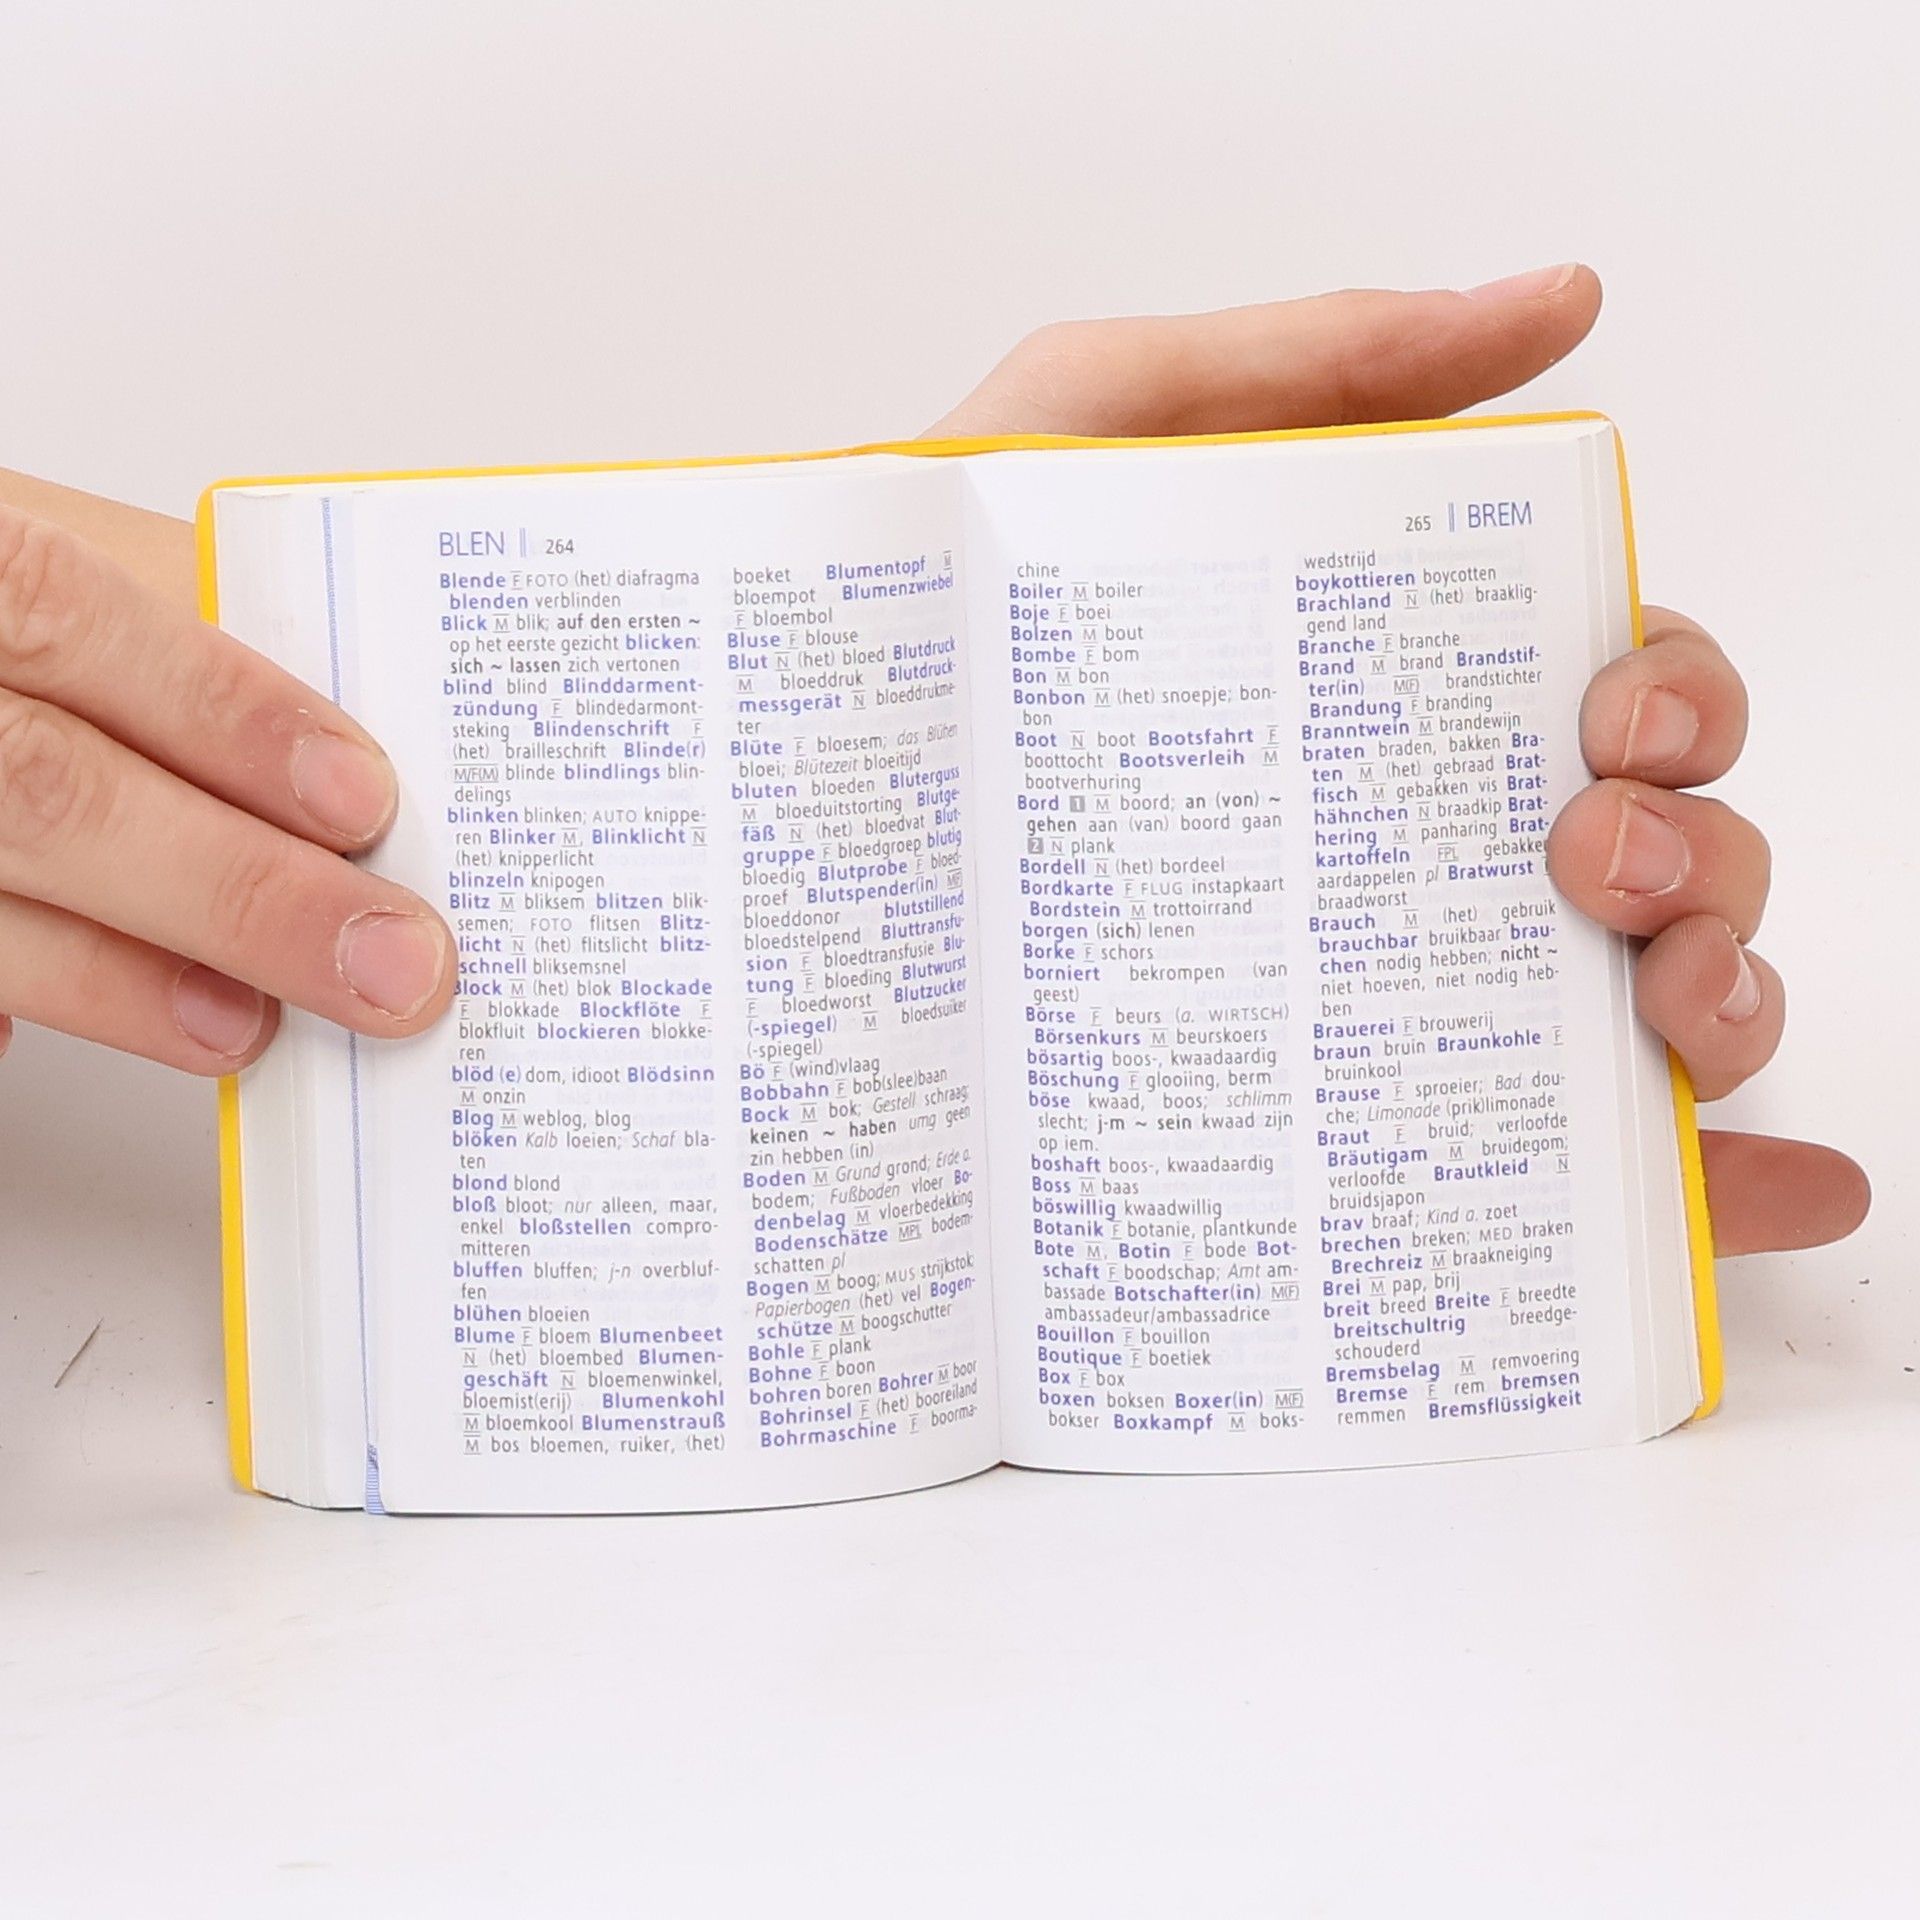 BLEN || 264
Blende F FOTO (het) diafragma
blenden verblinden
Blick M blik; auf den ersten ~
op het eerste gezicht blicken:
sich ~ lassen zich vertonen
blind blind Blinddarment-
zündung F blindedarmont-
steking Blindenschrift F
(het) brailleschrift Blinde(r)
M/F(M) blinde blindlings blin-
delings
blinken blinken; AUTO knippe-
ren Blinker M, Blinklicht N
(het) knipperlicht
blinzeln knipogen
Blitz M bliksem blitzen blik-
semen; FOTO flitsen Blitz-
licht N (het) flitslicht blitz-
schnell bliksemsnel
Block M (het) blok Blockade
F blokkade Blockflöte F
blokfluit blockieren blokke-
ren
blöd (e) dom, idioot Blödsinn
M onzin
Blog M weblog, blog
blöken Kalb loeien; Schaf bla-
ten
blond blond
bloß bloot; nur alleen, maar,
enkel bloßstellen compro-
mitteren
bluffen bluffen; j-n overbluf-
fen
blühen bloeien
Blume F bloem Blumenbeet
N (het) bloembed Blumen-
geschäft N bloemenwinkel,
bloemist(erij) Blumenkohl
M bloemkool Blumenstrauß
M bos bloemen, ruiker, (het)
boeket Blumentopf M
bloempot Blumenzwiebel
F bloembol
Bluse F blouse
Blut N (het) bloed Blutdruck
M bloeddruk Blutdruck-
messgerät N bloeddrukme-
ter
Blüte F bloesem; das Blühen
bloei; Blütezeit bloeitijd
bluten bloeden Bluterguss
M bloeduitstorting Blutge-
fäß N (het) bloedvat Blut-
gruppe F bloedgroep blutig
bloedig Blutprobe F bloed-
proef Blutspender(in) M(F)
bloeddonor blutstillend
bloedstelpend Bluttransfu-
sion F bloedtransfusie Blu-
tung F bloeding Blutwurst
F bloedworst Blutzucker
(-spiegel) M bloedsuiker
(-spiegel)
Bö F (wind)vlaag
Bobbahn F bob(slee)baan
Bock M bok; Gestell schraag;
keinen ~ haben umg geen
zin hebben (in)
Boden M Grund grond; Erde a.
bodem; Fußboden vloer Bo-
denbelag M vloerbedekking
Bodenschätze MPL bodem-
schatten pl
Bogen M boog; MUS strijkstok;
Papierbogen (het) vel Bogen-
schütze M boogschutter
Bohle F plank
Bohne F boon
bohren boren Bohrer M boor
Bohrinsel F (het) booreiland
Bohrmaschine F boorma-
265 || BREM
chine
Boiler M boiler
Boje F boei
Bolzen M bout
Bombe F bom
Bon M bon
Bonbon M (het) snoepje; bon-
bon
Boot N boot Bootsfahrt F
boottocht Bootsverleih M
bootverhuring
Bord 1 M boord; an (von) ~
gehen aan (van) boord gaan
2 N plank
Bordell N (het) bordeel
Bordkarte F FLUG instapkaart
Bordstein M trottoirrand
borgen (sich) lenen
Borke F schors
borniert bekrompen (van
geest)
Börse F beurs (a. WIRTSCH)
Börsenkurs M beurskoers
bösartig boos-, kwaadaardig
Böschung F glooiing, berm
böse kwaad, boos; schlimm
slecht; j-m ~ sein kwaad zijn
op iem.
boshaft boos-, kwaadaardig
Boss M baas
böswillig kwaadwillig
Botanik F botanie, plantkunde
Bote M, Botin F bode Bot-
schaft F boodschap; Amt am-
bassade Botschafter(in) M(F)
ambassadeur/ambassadrice
Bouillon F bouillon
Boutique F boetiek
Box F box
boxen boksen Boxer(in) M(F)
bokser Boxkampf M boks-
wedstrijd
boykottieren boycotten
Brachland N (het) braaklig-
gend land
Branche F branche
Brand M brand Brandstif-
ter(in) M(F) brandstichter
Brandung F branding
Branntwein M brandewijn
braten braden, bakken Bra-
ten M (het) gebraad Brat-
fisch M gebakken vis Brat-
hähnchen N braadkip Brat-
hering M panharing Brat-
kartoffeln FPL gebakken
aardappelen pl Bratwurst
braadworst
Brauch M (het) gebruik
brauchbar bruikbaar brau-
chen nodig hebben; nicht ~
niet hoeven, niet nodig heb-
ben
Brauerei F brouwerij
braun bruin Braunkohle F
bruinkool
Brause F sproeier; Bad dou-
che; Limonade (prik)limonade
Braut F bruid; verloofde
Bräutigam M bruidegom;
verloofde Brautkleid N
bruidsjapon
brav braaf; Kind a. zoet
brechen breken; MED braken
Brechreiz M braakneiging
Brei M pap, brij
breit breed Breite F breedte
breitschultrig breedge-
schouderd
Bremsbelag M remvoering
Bremse F rem bremsen
remmen Bremsflüssigkeit